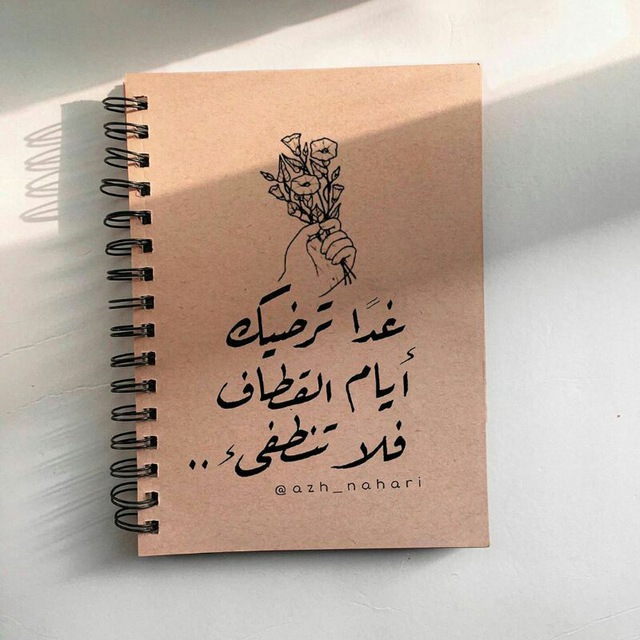 غدًا ترضيك
أيام القطاف
فلا تنطفىء..
@azh_nahari